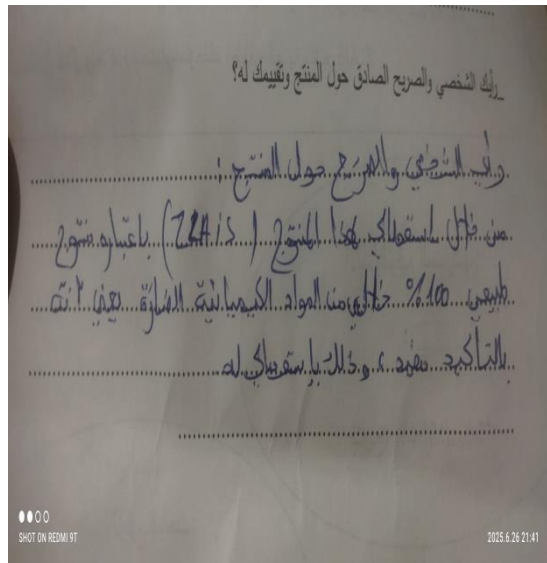 _رأيك الشخصي والصريح الصادق حول المنتج وتقييمك له؟
رأي الشخصي والصريح حول المنتج :
من خلال استعمالي لهذا المنتوج ( ) باعتباره منتوج
طبيعي 100% خالي من المواد الكيميائية الضارة يعني أنه
بالتأكيد مفيد، وذلك باستعمالي له
SHOT ON REDMI 9T
2025.6.26 21:41